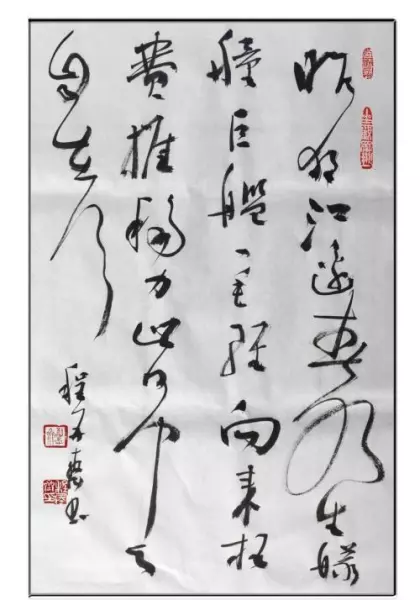 昨夜江邊春水生艨
艟巨艦一毛輕向來枉
費推移力此日中流
自在行
程 書